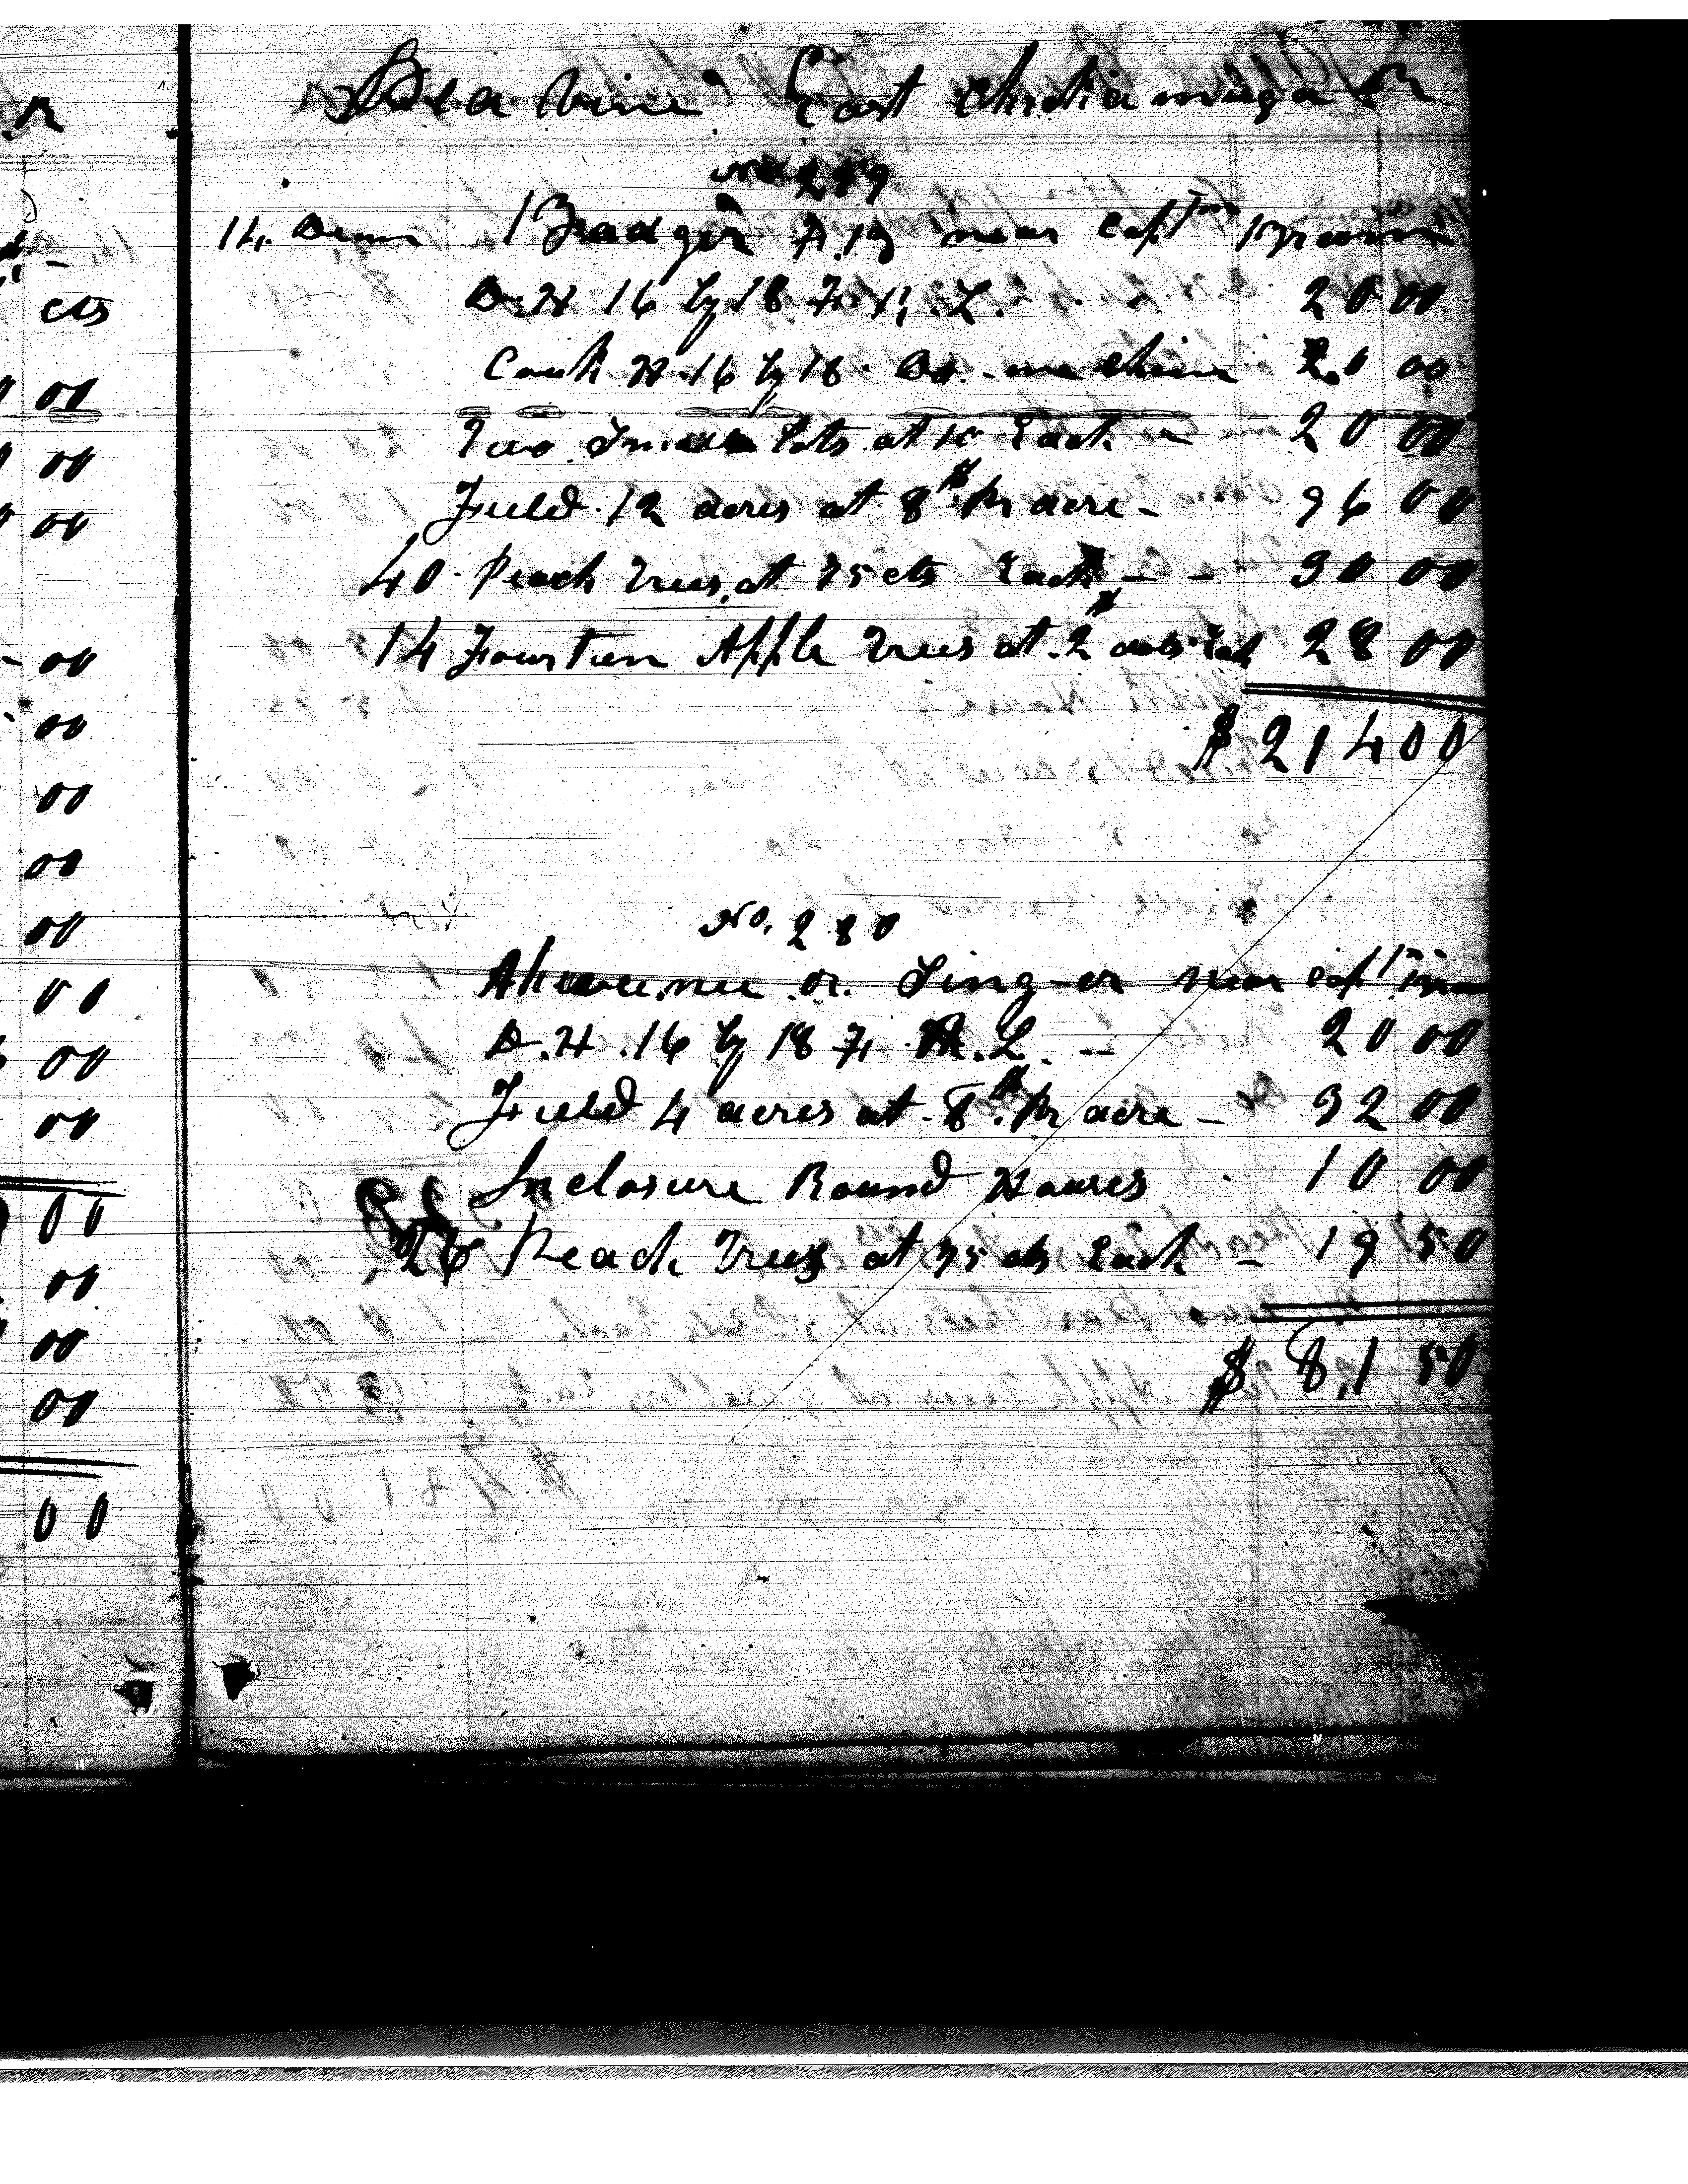 Pea Vine East Chickamauga R.
No. 279
14. near Capt
D. H 16 by 18 F. R. L. 20 00
Cook H. 16 by 18 Do. one Chim 20 00
Two Small Lots at 10 Each - 20 00
Field 12 acres at 8$ Pr acre - 96 00
40 Peach Trees at 75 cts Each - - 30 00
14 Fourteen Apple Trees at 2$ Each 28 00
$ 214 00
No. 280
or Sing-er near Capt
D. H. 16 by 18 F R. L. -- 20 00
Field 4 acres at 8$ Pr acre - 32 00
Inclosure Round Houses 10 00
26 Peach Trees at 75 cts Each - 19 50
$ 81 50
cts
00
00
00
00
00
00
00
00
00
00
00
00
00
00
00
00